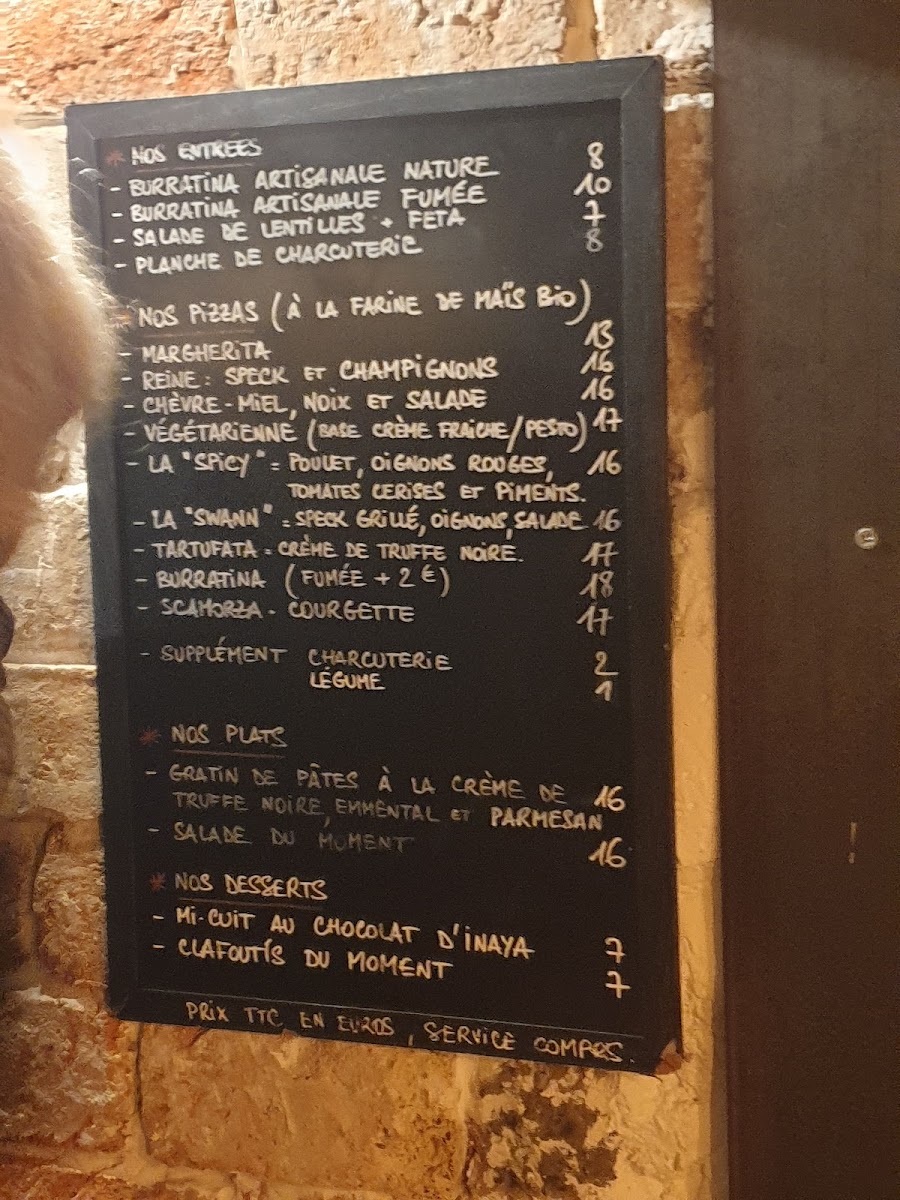 * NOS ENTRÉES
- BURRATINA ARTISANALE NATURE 8
- BURRATINA ARTISANALE FUMÉE 10
- SALADE DE LENTILLES + FETA 7
- PLANCHE DE CHARCUTERIE 8
* NOS PIZZAS (À LA FARINE DE MAÏS BIO)
- MARGHERITA 13
- REINE : SPECK ET CHAMPIGNONS 16
- CHÈVRE-MIEL, NOIX ET SALADE 16
- VÉGÉTARIENNE (BASE CRÈME FRAICHE/PESTO) 17
- LA "SPICY" = POULET, OIGNONS ROUGES, 16
TOMATES CERISES ET PIMENTS.
- LA "SWANN" = SPECK GRILLÉ, OIGNONS, SALADE 16
- TARTUFATA = CRÈME DE TRUFFE NOIRE. 17
- BURRATINA (FUMÉE + 2 €) 18
- SCAMORZA - COURGETTE 17
- SUPPLÉMENT CHARCUTERIE 2
LÉGUME 1
* NOS PLATS
- GRATIN DE PÂTES À LA CRÈME DE 16
TRUFFE NOIRE, EMMENTAL ET PARMESAN
- SALADE DU MOMENT 16
* NOS DESSERTS
- MI-CUIT AU CHOCOLAT D'INAYA 7
- CLAFOUTIS DU MOMENT 7
PRIX TTC EN EUROS, SERVICE COMPRS.